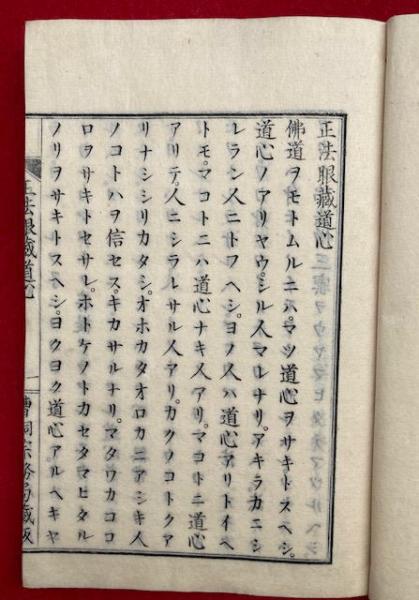 正法眼藏道心
佛道ヲモトムルニハ。マツ道心ヲサキトスヘシ。
道心ノアリヤウ。シル人マレナリ。アキラカニシ
レラン人ニトフヘシ。ヨノ人ハ道心アリトイヘ
トモ。マコトニハ道心ナキ人アリ。マコトニ道心
アリテ。人ニシラレサル人アリ。カクノコトクア
リナシシリカタシ。オホカタオロカニアシキ人
ノコトハヲ信セス。キカサルナリ。マタワカココ
ロヲサキトセサレ。ホトケノトカセタマヒタル
ノリヲサキトスヘシ。ヨクヨク道心アルヘキヤ
正法眼藏道心
一
曹洞宗務局藏版